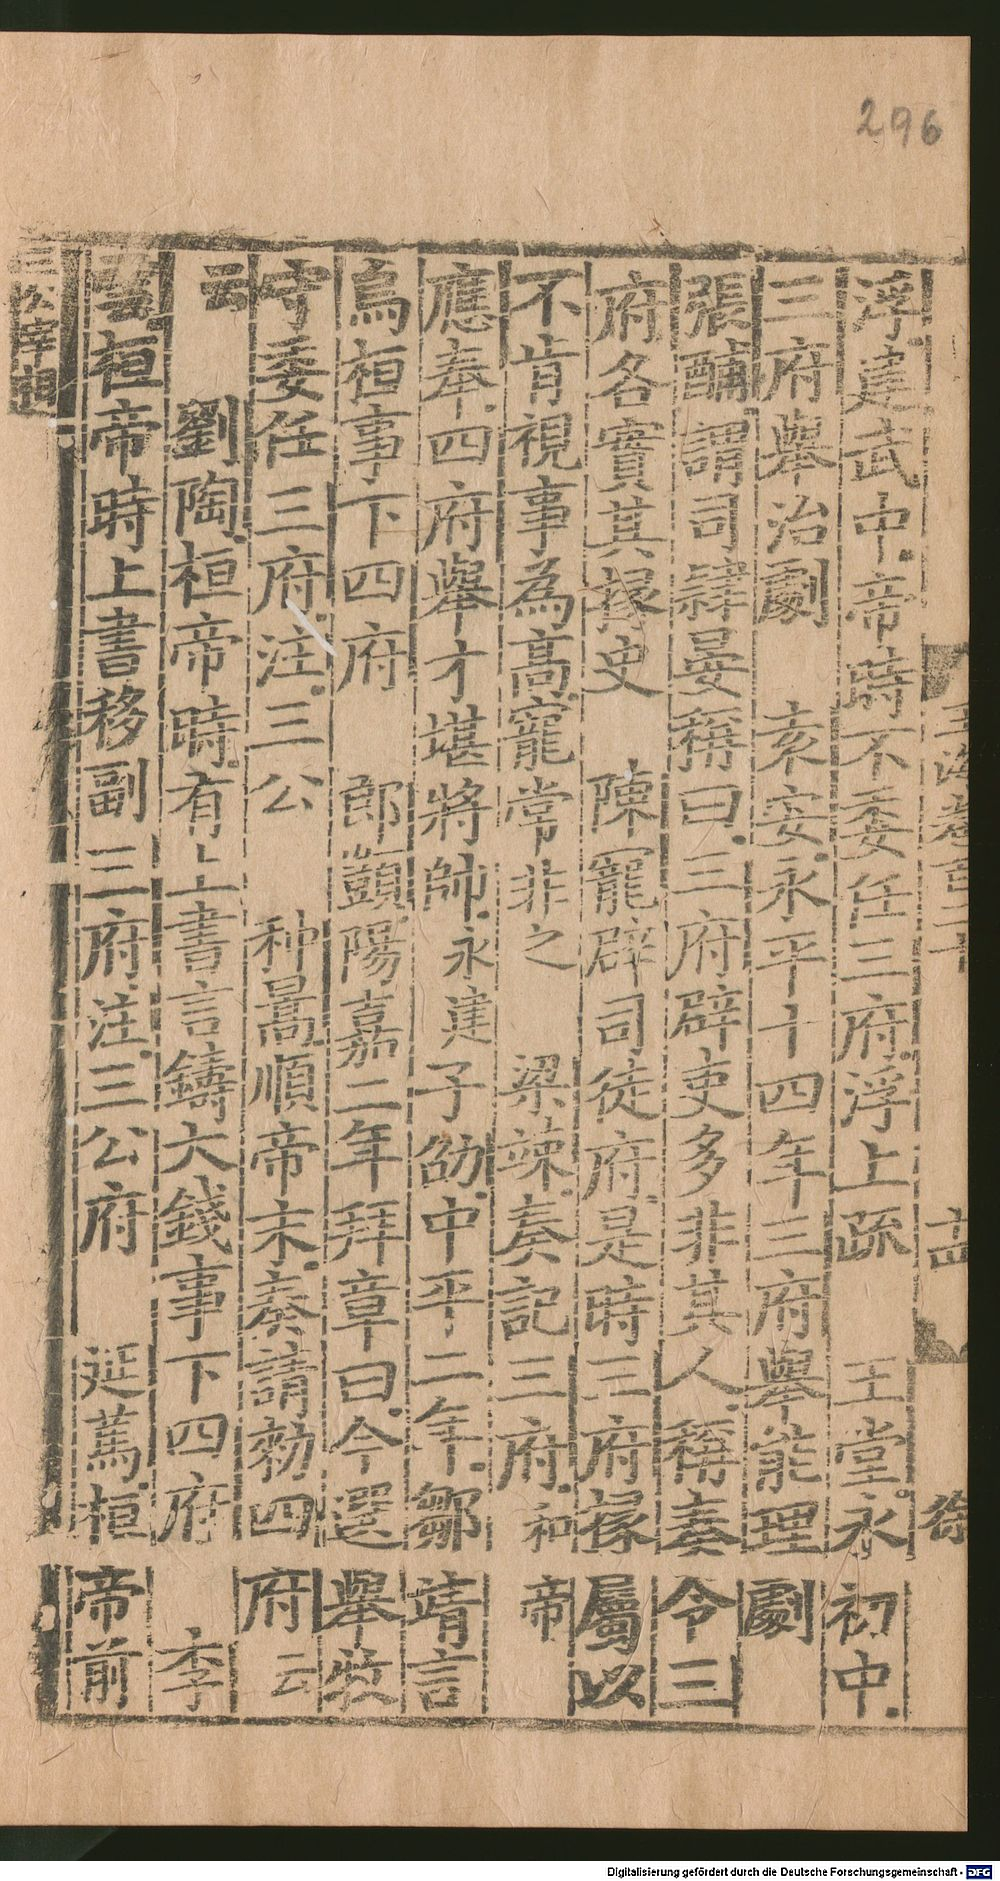 296
玉海卷百二十
十四
浮建武中帝時不委任三府浮上疏　王堂永初中
三府舉治劇　袁安永平十四年三府舉能理劇
張酺謂司隸晏稱曰三府辟吏多非其人稱奏令三
府各實其掾史　陳寵辟司徒府是時三府掾屬以
不肯視事為高寵常非之　梁竦奏記三府和帝
應奉四府舉才堪將帥永建子劭中平二年鄒靖言
烏桓事下四府　郎顗陽嘉二年拜章曰今選舉牧
守委任三府注三公　种暠順帝末奏請勑四府云
云　劉陶桓帝時有上書言鑄大錢事下四府　李
雲桓帝時上書移副三府注三公府　延篤桓帝前
三公宰相
Digitalisierung gefördert durch die Deutsche Forschungsgemeinschaft - DFG